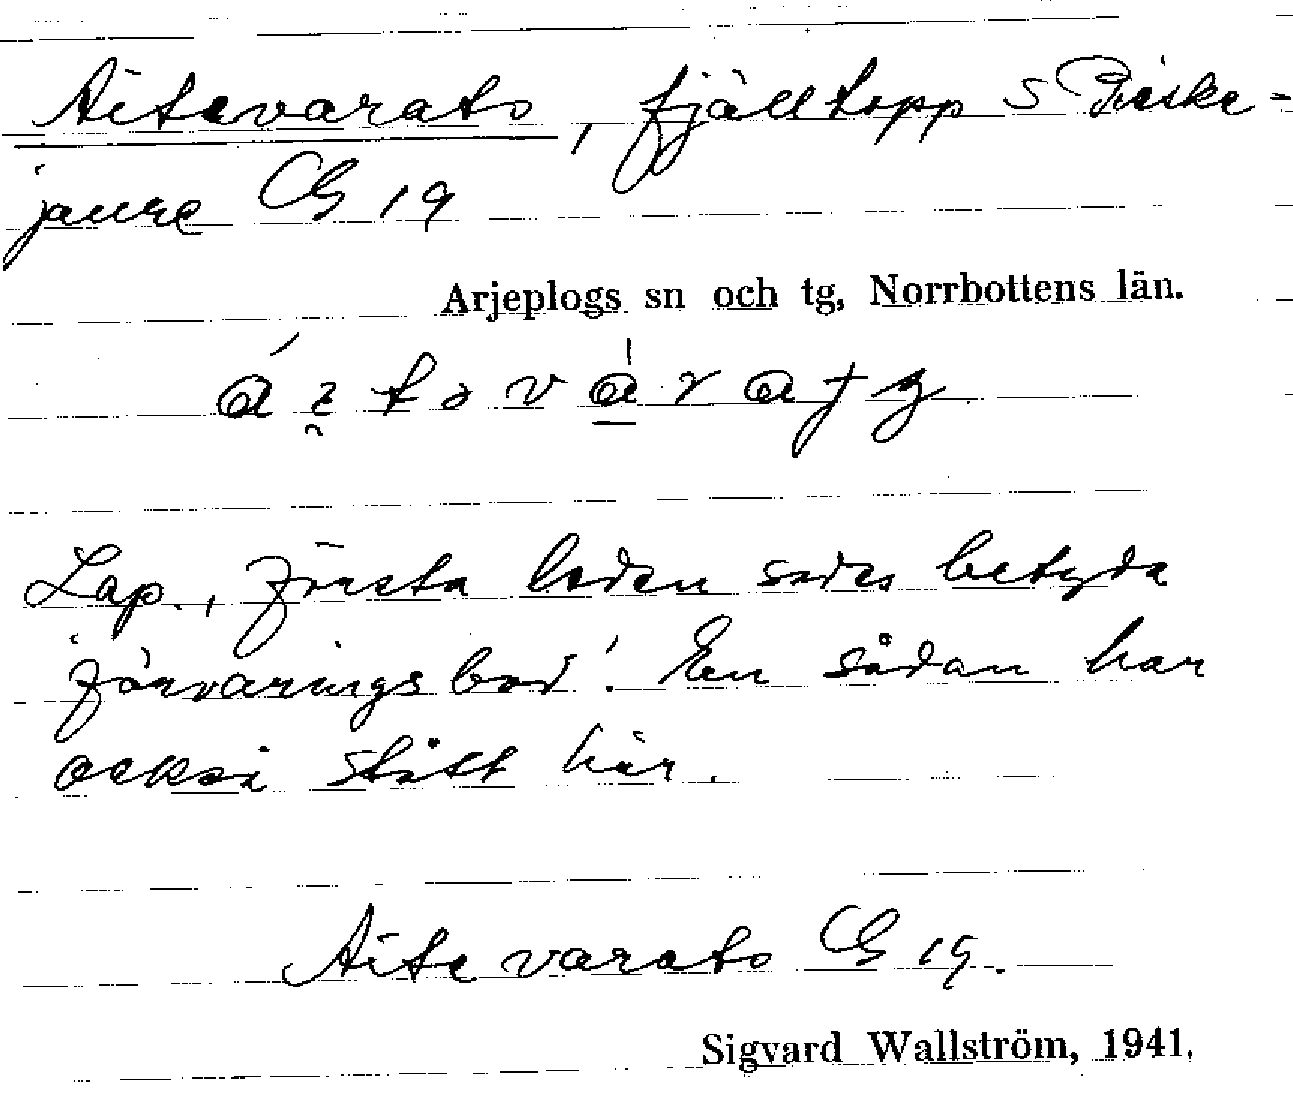 Aitevarats, fjälltopp S Pieske-
jaure CG 19
Arjeplogs sn och tg, Norrbottens län.
Lap., första leden sades betyda
'förvaringsbod'. En sådan har
också stått här.
Aitevarats CG 19.
Sigvard Wallström, 1941.